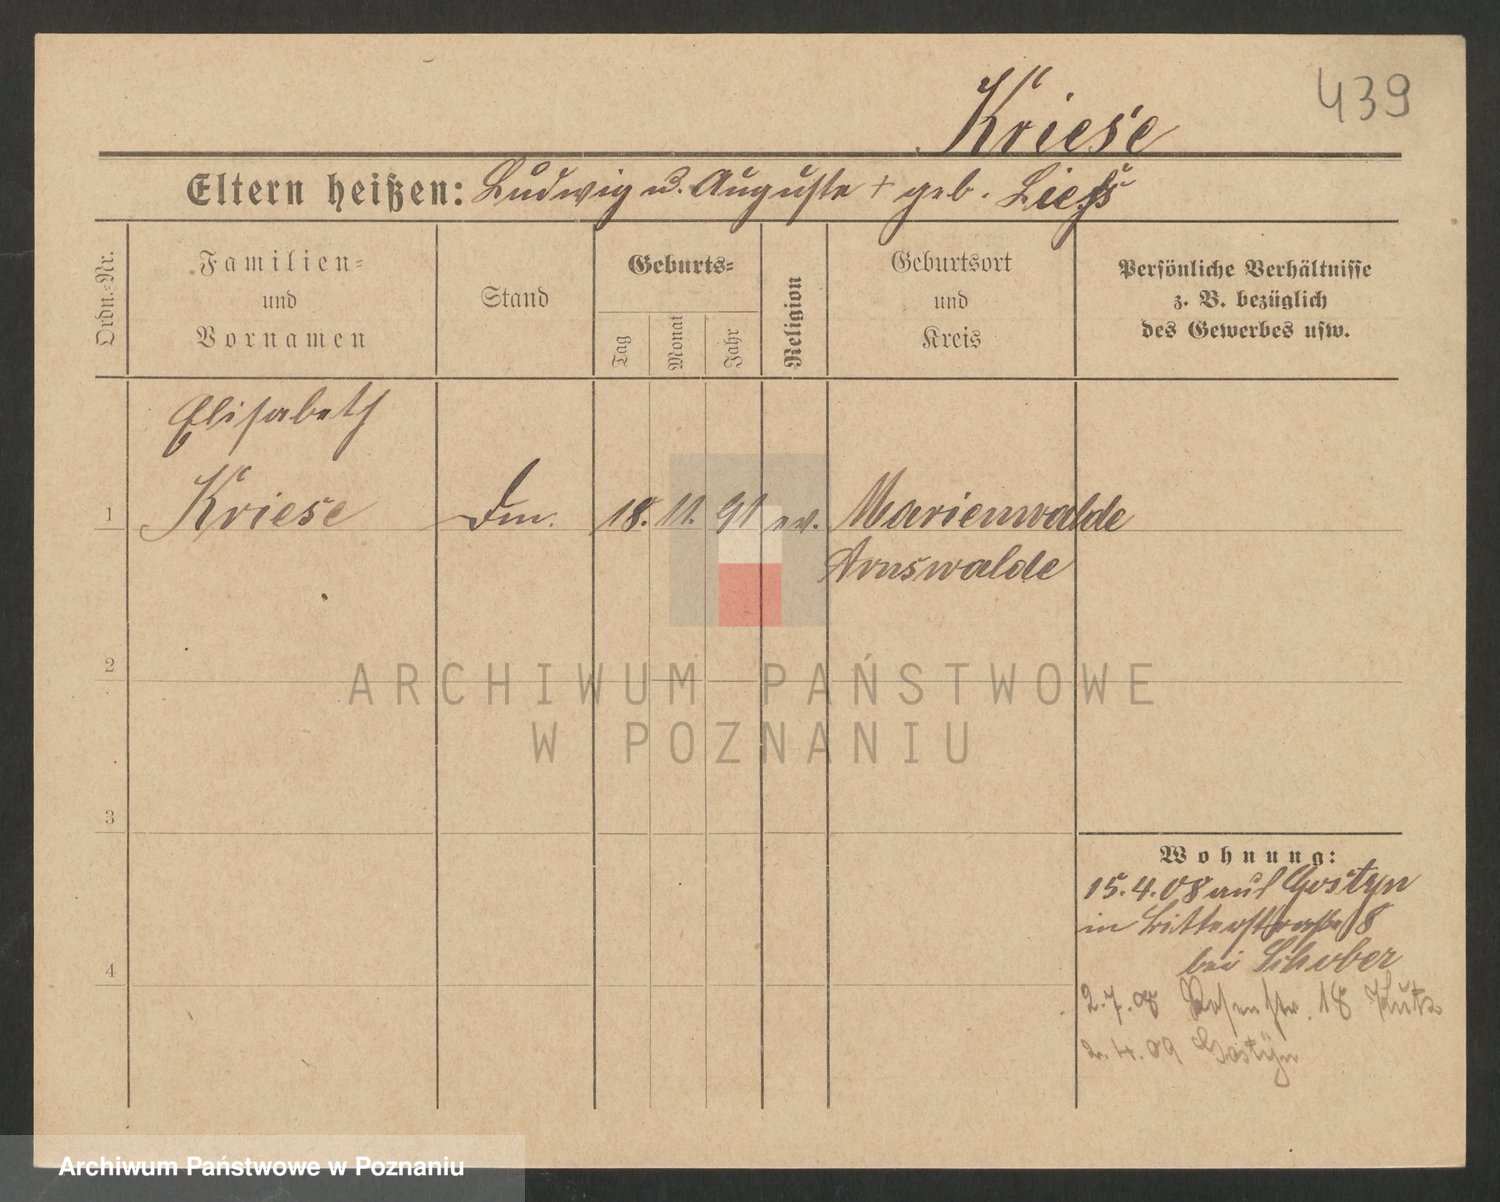 439
Kriese
Eltern heißen: Ludwig u. Auguste + geb. Liefs
Ordn.-Nr.
Familien-
und
Vornamen
Stand
Geburts-
Tag
Monat
Jahr
Religion
Geburtsort
und
Kreis
Persönliche Verhältnisse
z. B. bezüglich
des Gewerbes usw.
Elisabeth
1 Kriese Dm. 18. 11. 91 ev. Marienwalde
Arnswalde
2
ARCHIWUM PAŃSTWOWE
W POZNANIU
3
Wohnung:
15.4.08 aus Gostyn
in Ritterstraße 8
bei Schober
4
2.7.08 Rosenstr. 18
2.4.09 Gostyn
Archiwum Państwowe w Poznaniu